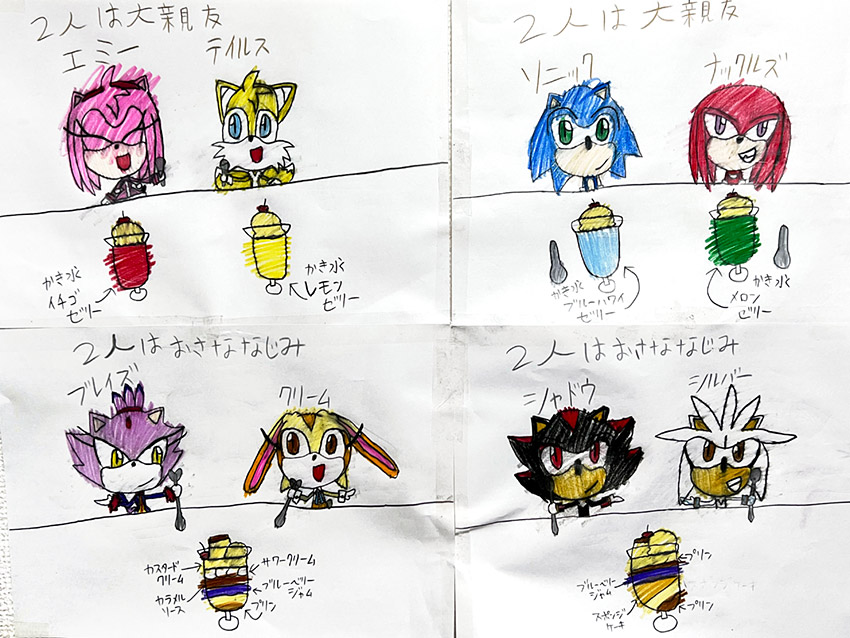 2人は大親友
エミー
テイルス
かき氷
イチゴ
ゼリー
かき氷
レモン
ゼリー
2人は大親友
ソニック
ナックルズ
かき氷
ブルーハワイ
ゼリー
かき氷
メロン
ゼリー
2人はおさななじみ
ブレイズ
クリーム
カスタード
クリーム
カラメル
ソース
サワークリーム
ブルーベリー
ジャム
プリン
2人はおさななじみ
シャドウ
シルバー
プリン
ブルーベリー
ジャム
スポンジ
ケーキ
プリン